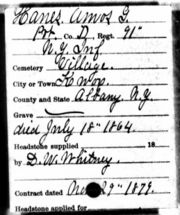 Hanes. Amos G.
Pvt. Co. D, Regt. 91"
N.Y. Inf.
Cemetery Village.
City or Town Knox.
County and State Albany N.Y.
Grave
died July 18" 1864.
Headstone supplied 18
by D. W. Whitney.
Contract dated 29" 1879.
Headstone applied for